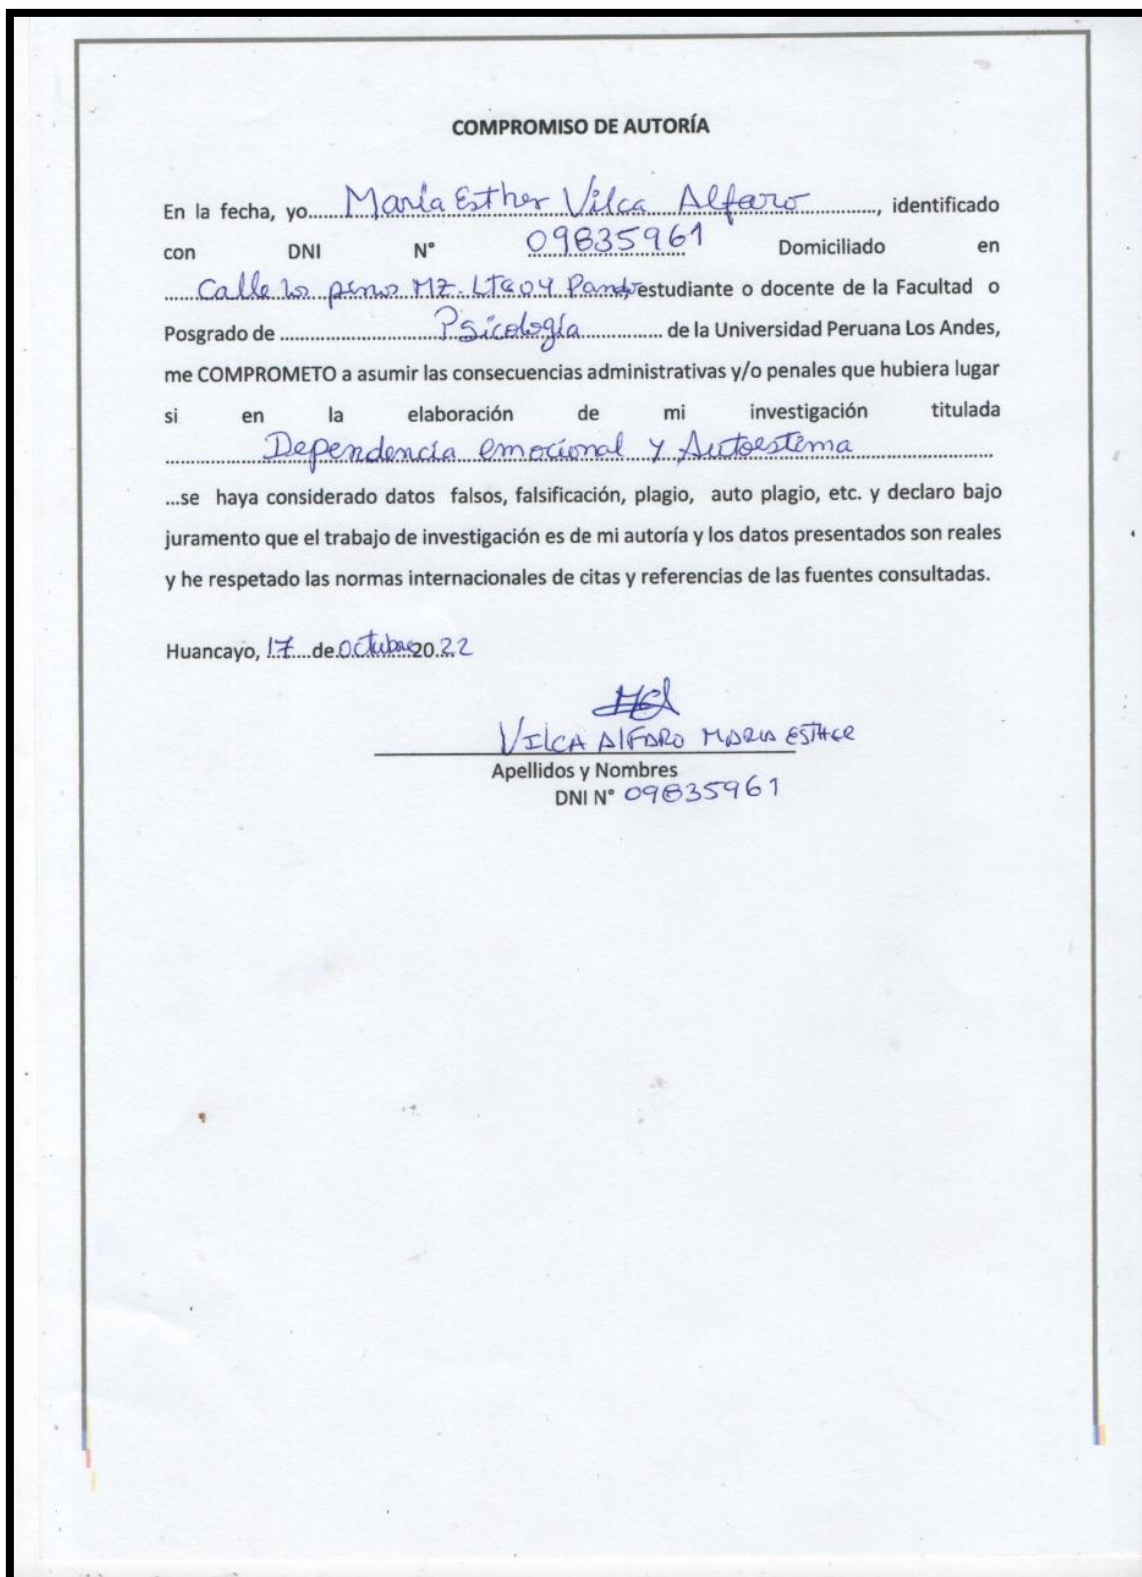 COMPROMISO DE AUTORÍA
En la fecha, yo.....María Esther Vilca Alfaro..............., identificado
con DNI N° 09835961 Domiciliado en
.......Calle los pinos MZ-LT604 estudiante o docente de la Facultad o
Posgrado de ...................................Psicología................. de la Universidad Peruana Los Andes,
me COMPROMETO a asumir las consecuencias administrativas y/o penales que hubiera lugar
si en la elaboración de mi investigación titulada
.....................Dependencia emocional y Autoestima..............................
...se haya considerado datos falsos, falsificación, plagio, auto plagio, etc. y declaro bajo
juramento que el trabajo de investigación es de mi autoría y los datos presentados son reales
y he respetado las normas internacionales de citas y referencias de las fuentes consultadas.
Huancayo, 17....de.Octubre20.22
VILCA AlFARO MARIA ESTHER
Apellidos y Nombres
DNI N° 09835961